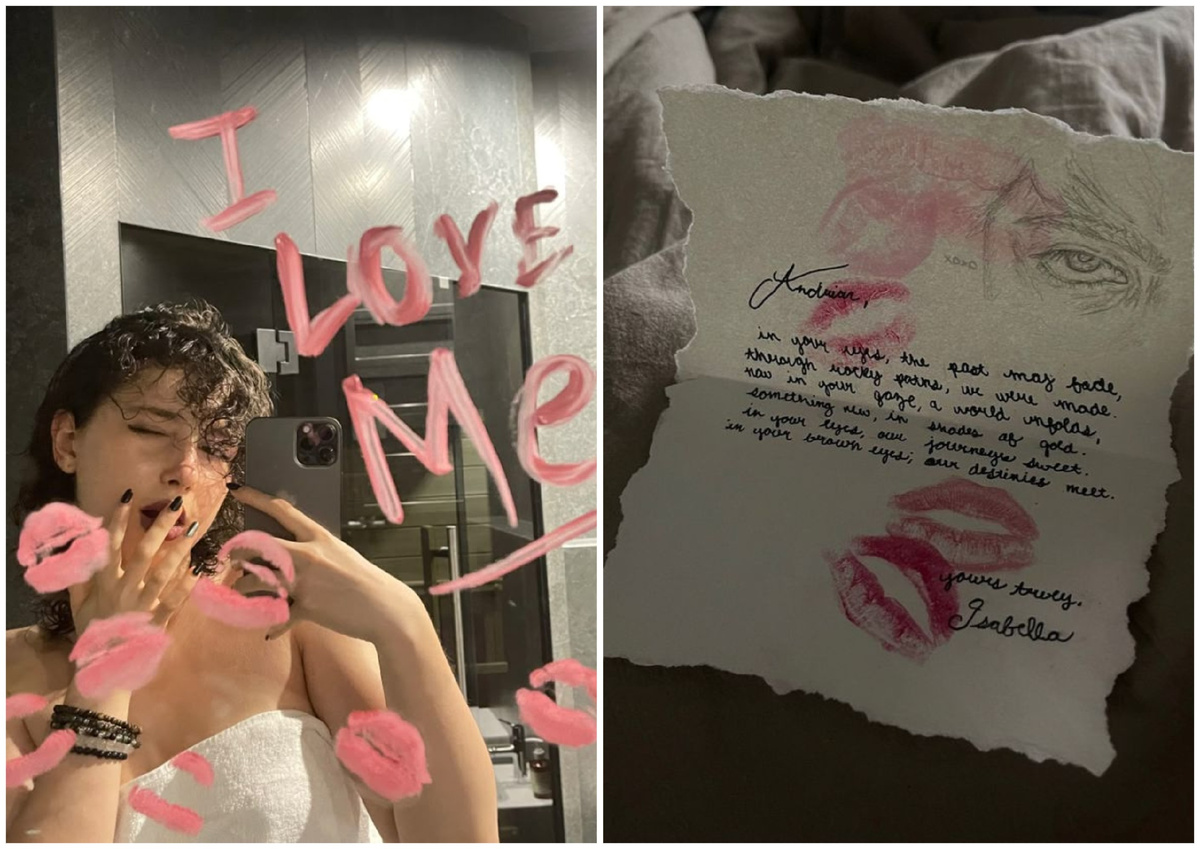 I
LOVE
Me
xoxo
Andrian,
in your eyes, the past may fade,
through rocky paths, we were made.
now in your gaze, a world unfolds,
something new, in shades of gold.
in your eyes, our journeys sweet.
in your brown eyes; our destinies meet.
yours truly,
Isabella